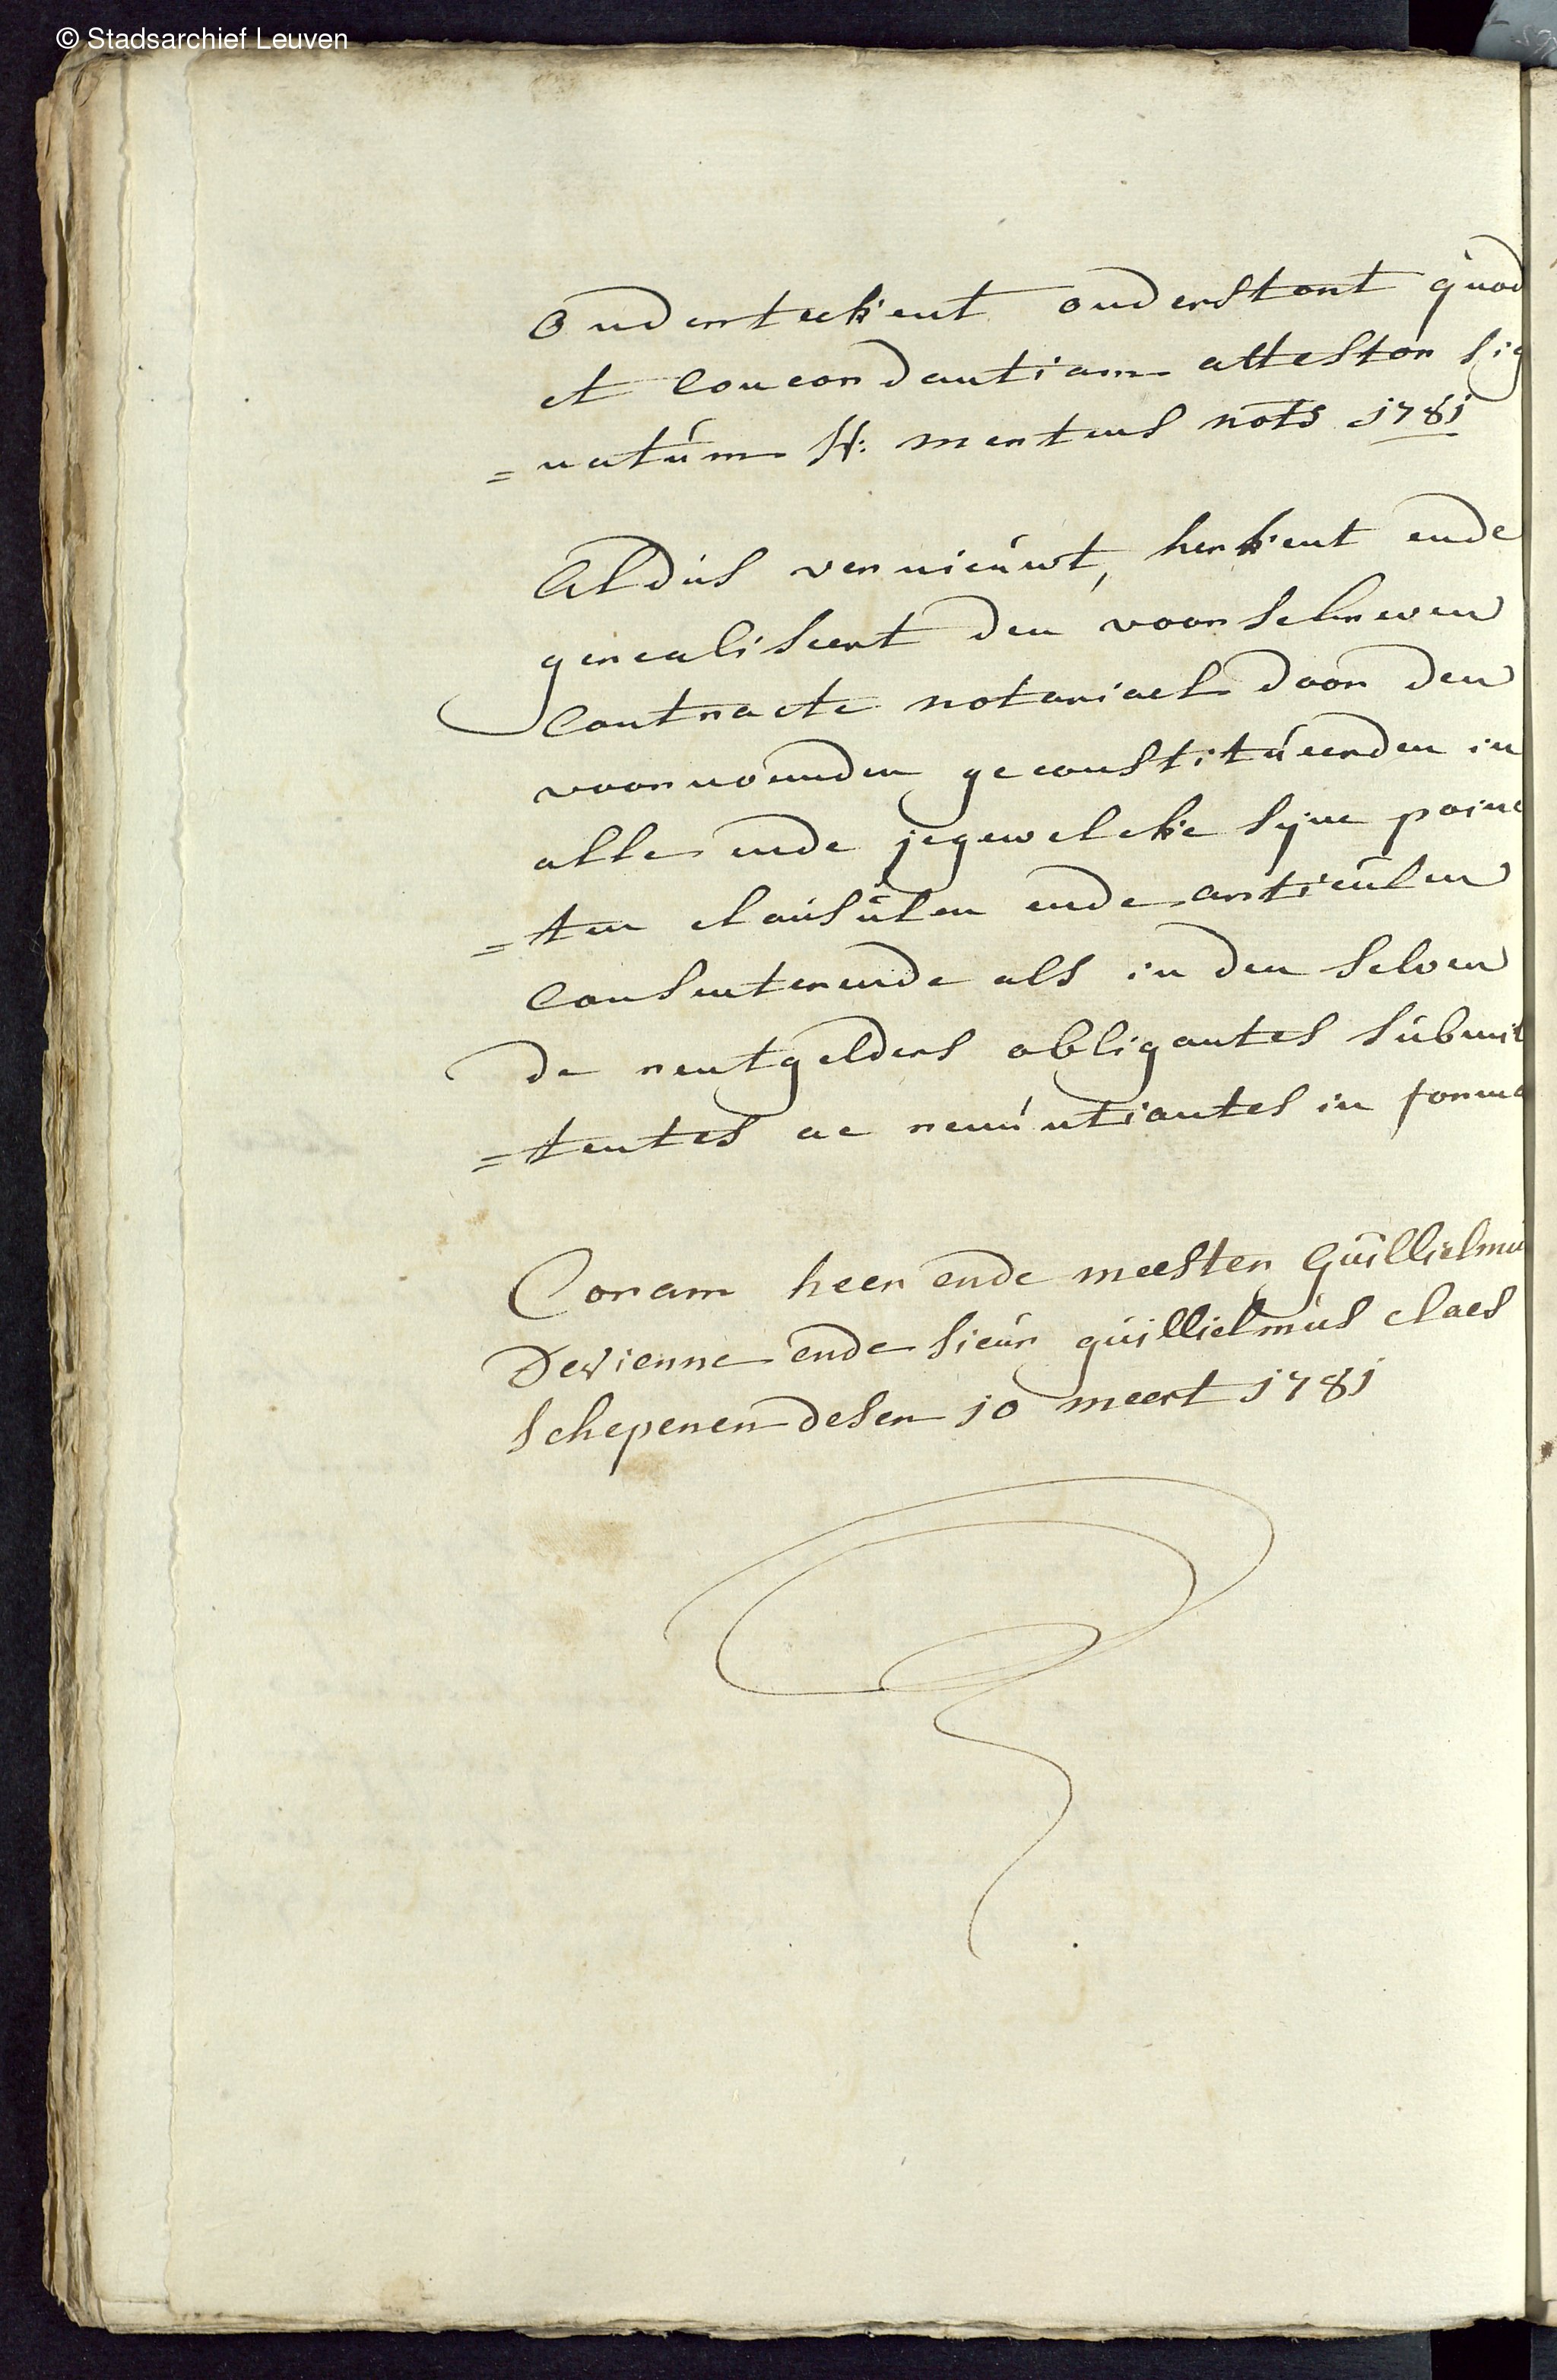 © Stadsarchief Leuven
onderteekent onderstont quod
et concordantiam attestor sig
=natum H: mertens nots 1781
Aldus vernieuwt, herkent ende
gerealiseert den voorschreven
Contracte notariael door den
voornoemden geconstitueerden in
alle ende jegewelcke syne poinc
=ten clausulen ende articulen
Consenterende als in den selven
de rentgelders obligantes submit
=tentes ac renuntiantes in forma
Coram heer ende meester Guillielmus
Devienne ende sieur guillielmus claes
schepenen desen 10 meert 1781